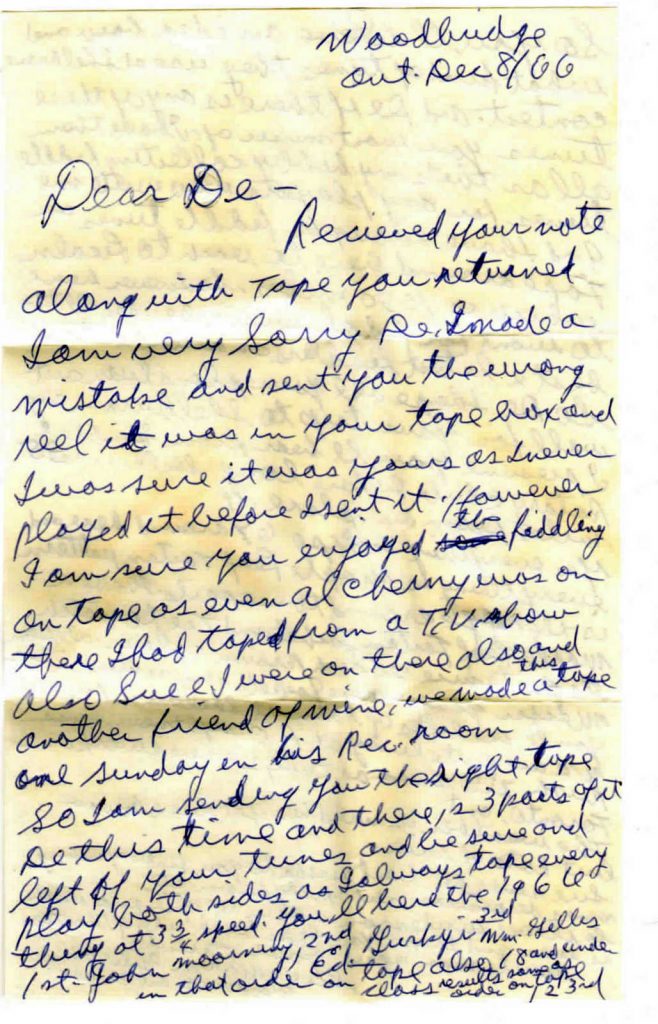 Woodbridge
Ont. Dec 8/66
Dear De -
Recieved your note
along with Tape you returned
I am very Sorry De. I made a
mistake and sent you the wrong
reel it was in your tape box and
I was sure it was yours as I never
played it before I sent it. However
I am sure you enjoyed the fiddling
on tape as even al Cherny was on
there I had taped from a T.V. show
also Sue & I were on there also and
another friend of mine, we made this tape
one sunday in his Rec. room
So I am sending you the right tape
De this time and there, s 3 parts of it
left of your tunes and be sure and
play both sides as I always tape every
thing at 3 3/4 speed. You,ll here the 1966
1st. John Moorning, 2nd Ed. Gurky - 3rd Wm. Gilles
in that order on tape also 18 and under
class results same as
order on tape
1 2 3rd